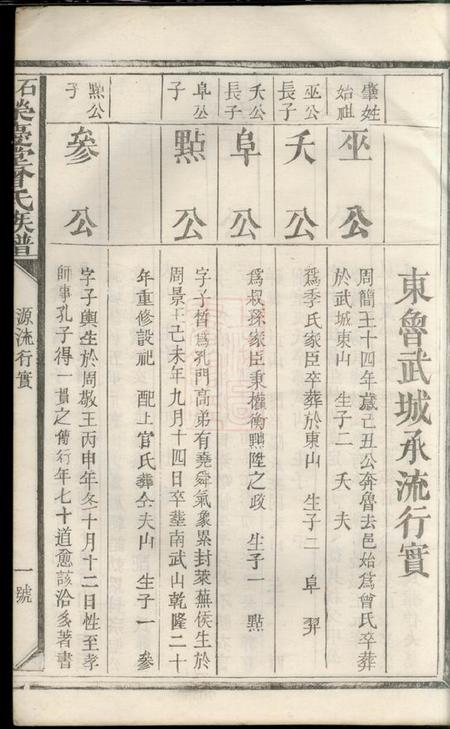 東魯武城承流行實
肇姓始祖
巫公
周簡王十四年歲己丑公奔魯去邑始爲曾氏卒葬
於武城東山 生子二 夭 夫
巫公長子
夭公
爲季氏家臣卒葬於東山 生子二 阜 羿
夭公長子
阜公
爲叔孫家臣秉權衡興陞之政 生子一 點
阜公子
點公
字子晳爲孔門高弟有堯舜氣象累封萊蕪侯生於
周景王己未年九月十四日卒塟南武山乾隆二十
年重修設祀 配上官氏葬仝夫山 生子一 參
點公子
參公
字子輿生於周敬王丙申年冬十月十二日性至孝
師事孔子得一貫之傳行年七十道愈該洽多著書
石榮慶堂曾氏族譜
源流行實
一號